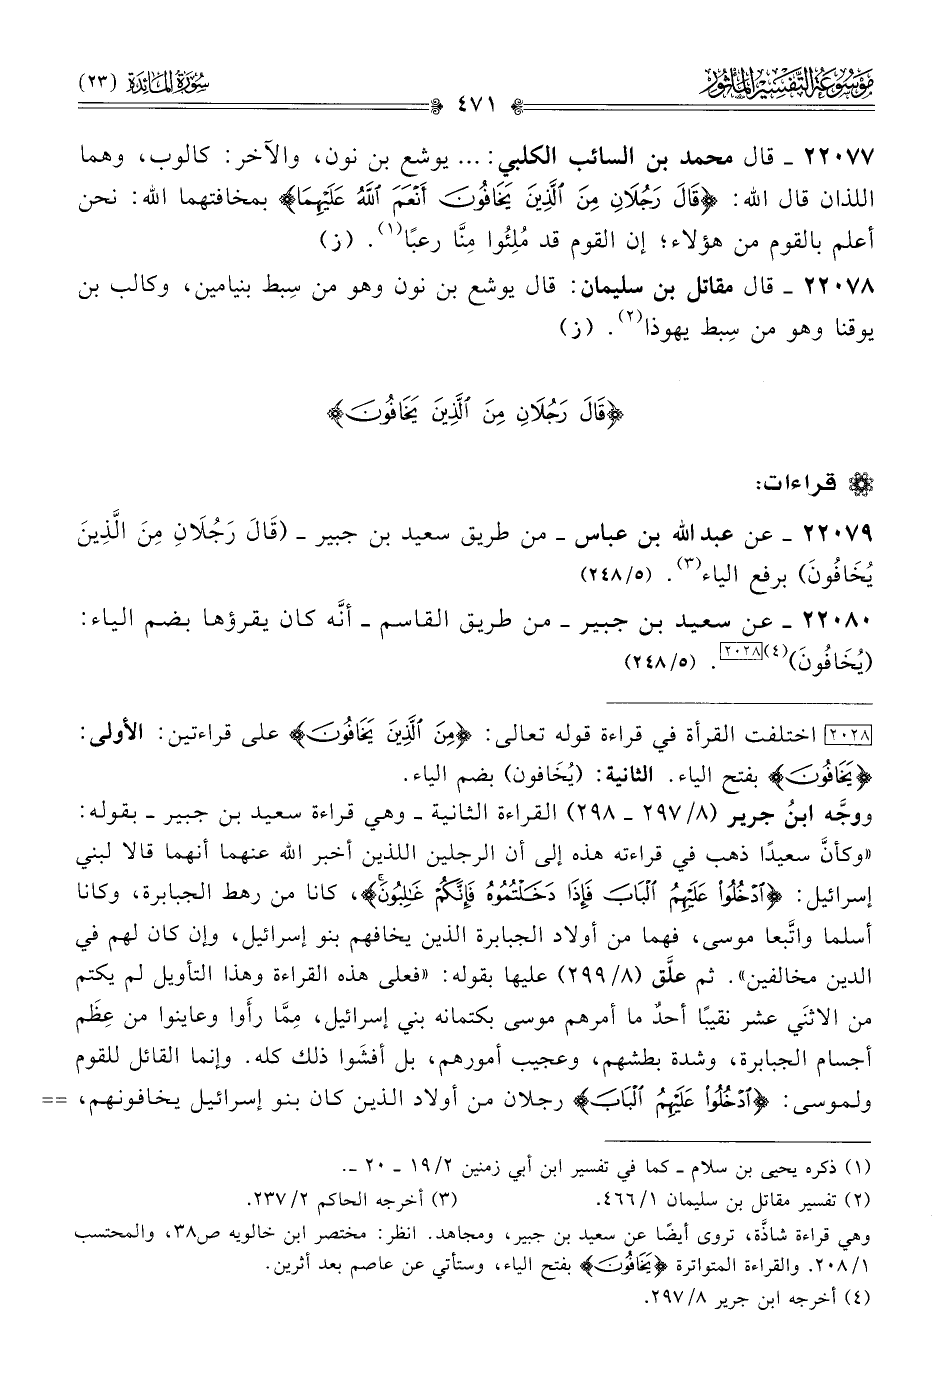 مَوْسُوعَة التَّفْسِير المَأثُور
سُورَة المَائِدَة (٢٣)
٤٧١
٢٢٠٧٧ ـ قال محمد بن السائب الكلبي: ... يوشع بن نون، والآخر: كالوب، وهما
اللذان قال الله: ﴿قَالَ رَجُلَانِ مِنَ ٱلَّذِينَ يَخَافُونَ أَنْعَمَ ٱللَّهُ عَلَيْهِمَا﴾ بمخافتهما الله: نحن
أعلم بالقوم من هؤلاء؛ إن القوم قد مُلِئُوا مِنَّا رعبًا(١). (ز)
٢٢٠٧٨ ـ قال مقاتل بن سليمان: قال يوشع بن نون وهو من سِبط بنيامين، وكالب بن
يوقنا وهو من سِبط يهوذا(٢). (ز)
﴿قَالَ رَجُلَانِ مِنَ ٱلَّذِينَ يَخَافُونَ﴾
قراءات:
٢٢٠٧٩ ـ عن عبد الله بن عباس ـ من طريق سعيد بن جبير ـ (قَالَ رَجُلَانِ مِنَ الَّذِينَ
يُخَافُونَ) برفع الياء(٣). (٢٤٨/٥)
٢٢٠٨٠ ـ عن سعيد بن جبير ـ من طريق القاسم ـ أنَّه كان يقرؤها بضم الياء:
(يُخَافُونَ)(٤)[٢٠٢٨]. (٢٤٨/٥)
[٢٠٢٨] اختلفت القرأة في قراءة قوله تعالى: ﴿مِنَ ٱلَّذِينَ يَخَافُونَ﴾ على قراءتين: الأولى:
﴿يَخَافُونَ﴾ بفتح الياء. الثانية: (يُخَافون) بضم الياء.
ووجَّه ابنُ جرير (٢٩٧/٨ ـ ٢٩٨) القراءة الثانية ـ وهي قراءة سعيد بن جبير ـ بقوله:
«وكأنَّ سعيدًا ذهب في قراءته هذه إلى أن الرجلين اللذين أخبر الله عنهما أنهما قالا لبني
إسرائيل: ﴿ٱدْخُلُوا۟ عَلَيْهِمُ ٱلْبَابَ فَإِذَا دَخَلْتُمُوهُ فَإِنَّكُمْ غَـٰلِبُونَۚ﴾، كانا من رهط الجبابرة، وكانا
أسلما واتَّبعا موسى، فهما من أولاد الجبابرة الذين يخافهم بنو إسرائيل، وإن كان لهم في
الدين مخالفين». ثم علَّق (٢٩٩/٨) عليها بقوله: «فعلى هذه القراءة وهذا التأويل لم يكتم
من الاثنَي عشر نقيبًا أحدٌ ما أمرهم موسى بكتمانه بني إسرائيل، مِمَّا رأَوا وعاينوا من عِظَم
أجسام الجبابرة، وشدة بطشهم، وعجيب أمورهم، بل أفشَوا ذلك كله. وإنما القائل للقوم
ولموسى: ﴿ٱدْخُلُوا۟ عَلَيْهِمُ ٱلْبَابَ﴾ رجلان من أولاد الذين كان بنو إسرائيل يخافونهم، ==
(١) ذكره يحيى بن سلام ـ كما في تفسير ابن أبي زمنين ١٩/٢ ـ ٢٠ ـ.
(٢) تفسير مقاتل بن سليمان ٤٦٦/١. (٣) أخرجه الحاكم ٢٣٧/٢.
وهي قراءة شاذَّة، تروى أيضًا عن سعيد بن جبير، ومجاهد. انظر: مختصر ابن خالويه ص٣٨، والمحتسب
٢٠٨/١. والقراءة المتواترة ﴿يَخَافُونَ﴾ بفتح الياء، وستأتي عن عاصم بعد أثرين.
(٤) أخرجه ابن جرير ٢٩٧/٨.